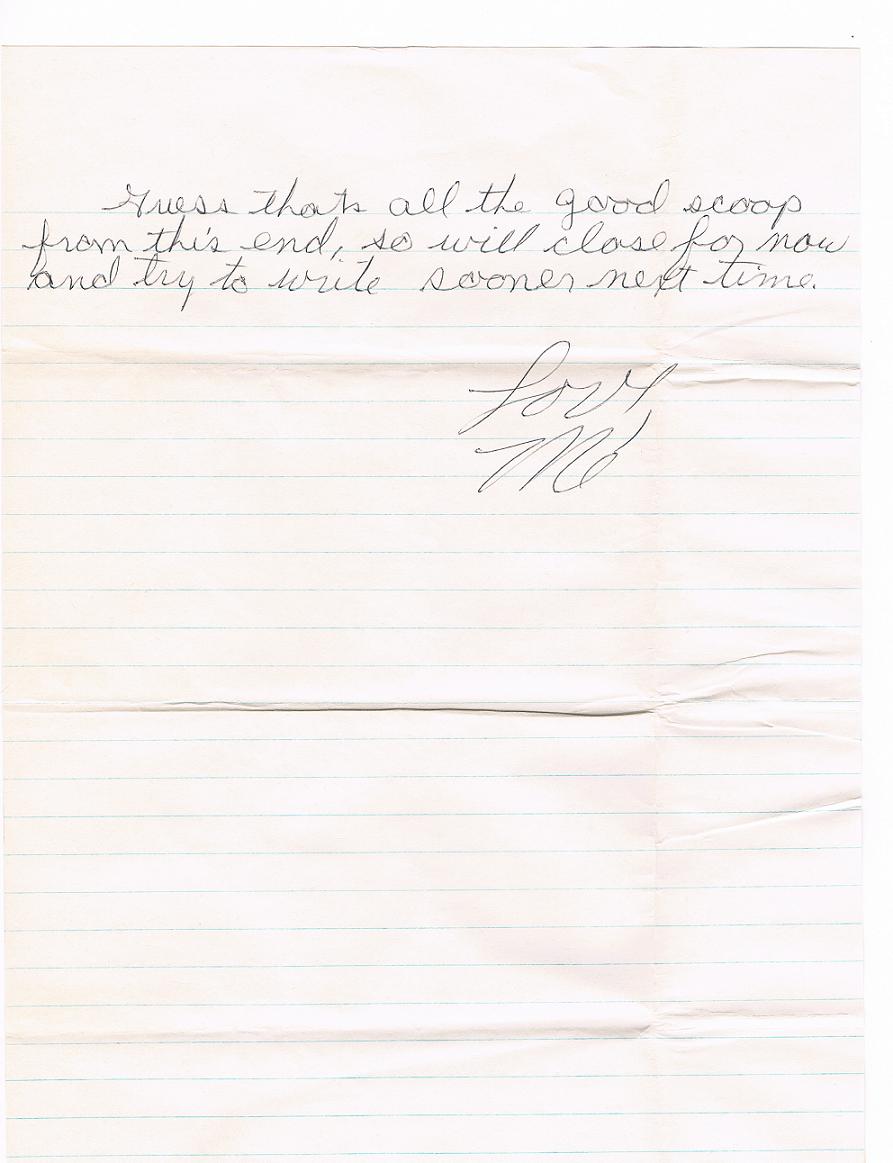 Guess thats all the good scoop
from this end, so will close for now
and try to write sooner next time.
Love
Me